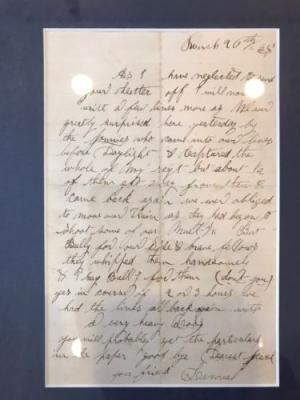 March 26th / 65
As I have neglected to send
your Letter off I will now
writ a few lines more as we are
greatly surprised here yesterday by
the Jonnies who came into our lines
before Daylight & Captured the
whole of my regt but about
of them got away from them &
came back again we were obliged
to move our Train as they had began to
shoot some of our
Bully for our side & brave fellows
they whipped them handsomely
& I say Bully for them (dont you)
yes in course if 2 or 3 hours we
had the lines all back again with
a very heavy loss
you will probably get the particulars
in the paper good bye (Dearest
your friend